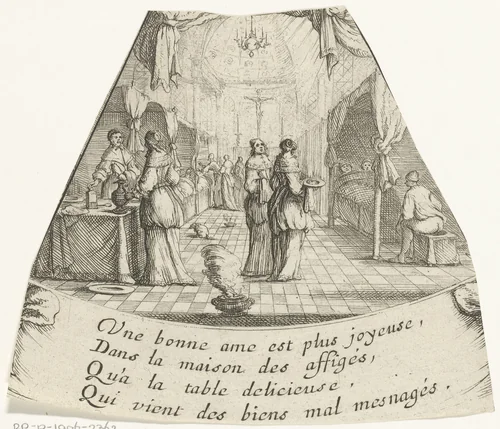 Une bonne ame est plus joyeuse,
Dans la maison des affigés,
Qu'a la table delicieuse,
Qui vient des biens mal mesnagés.